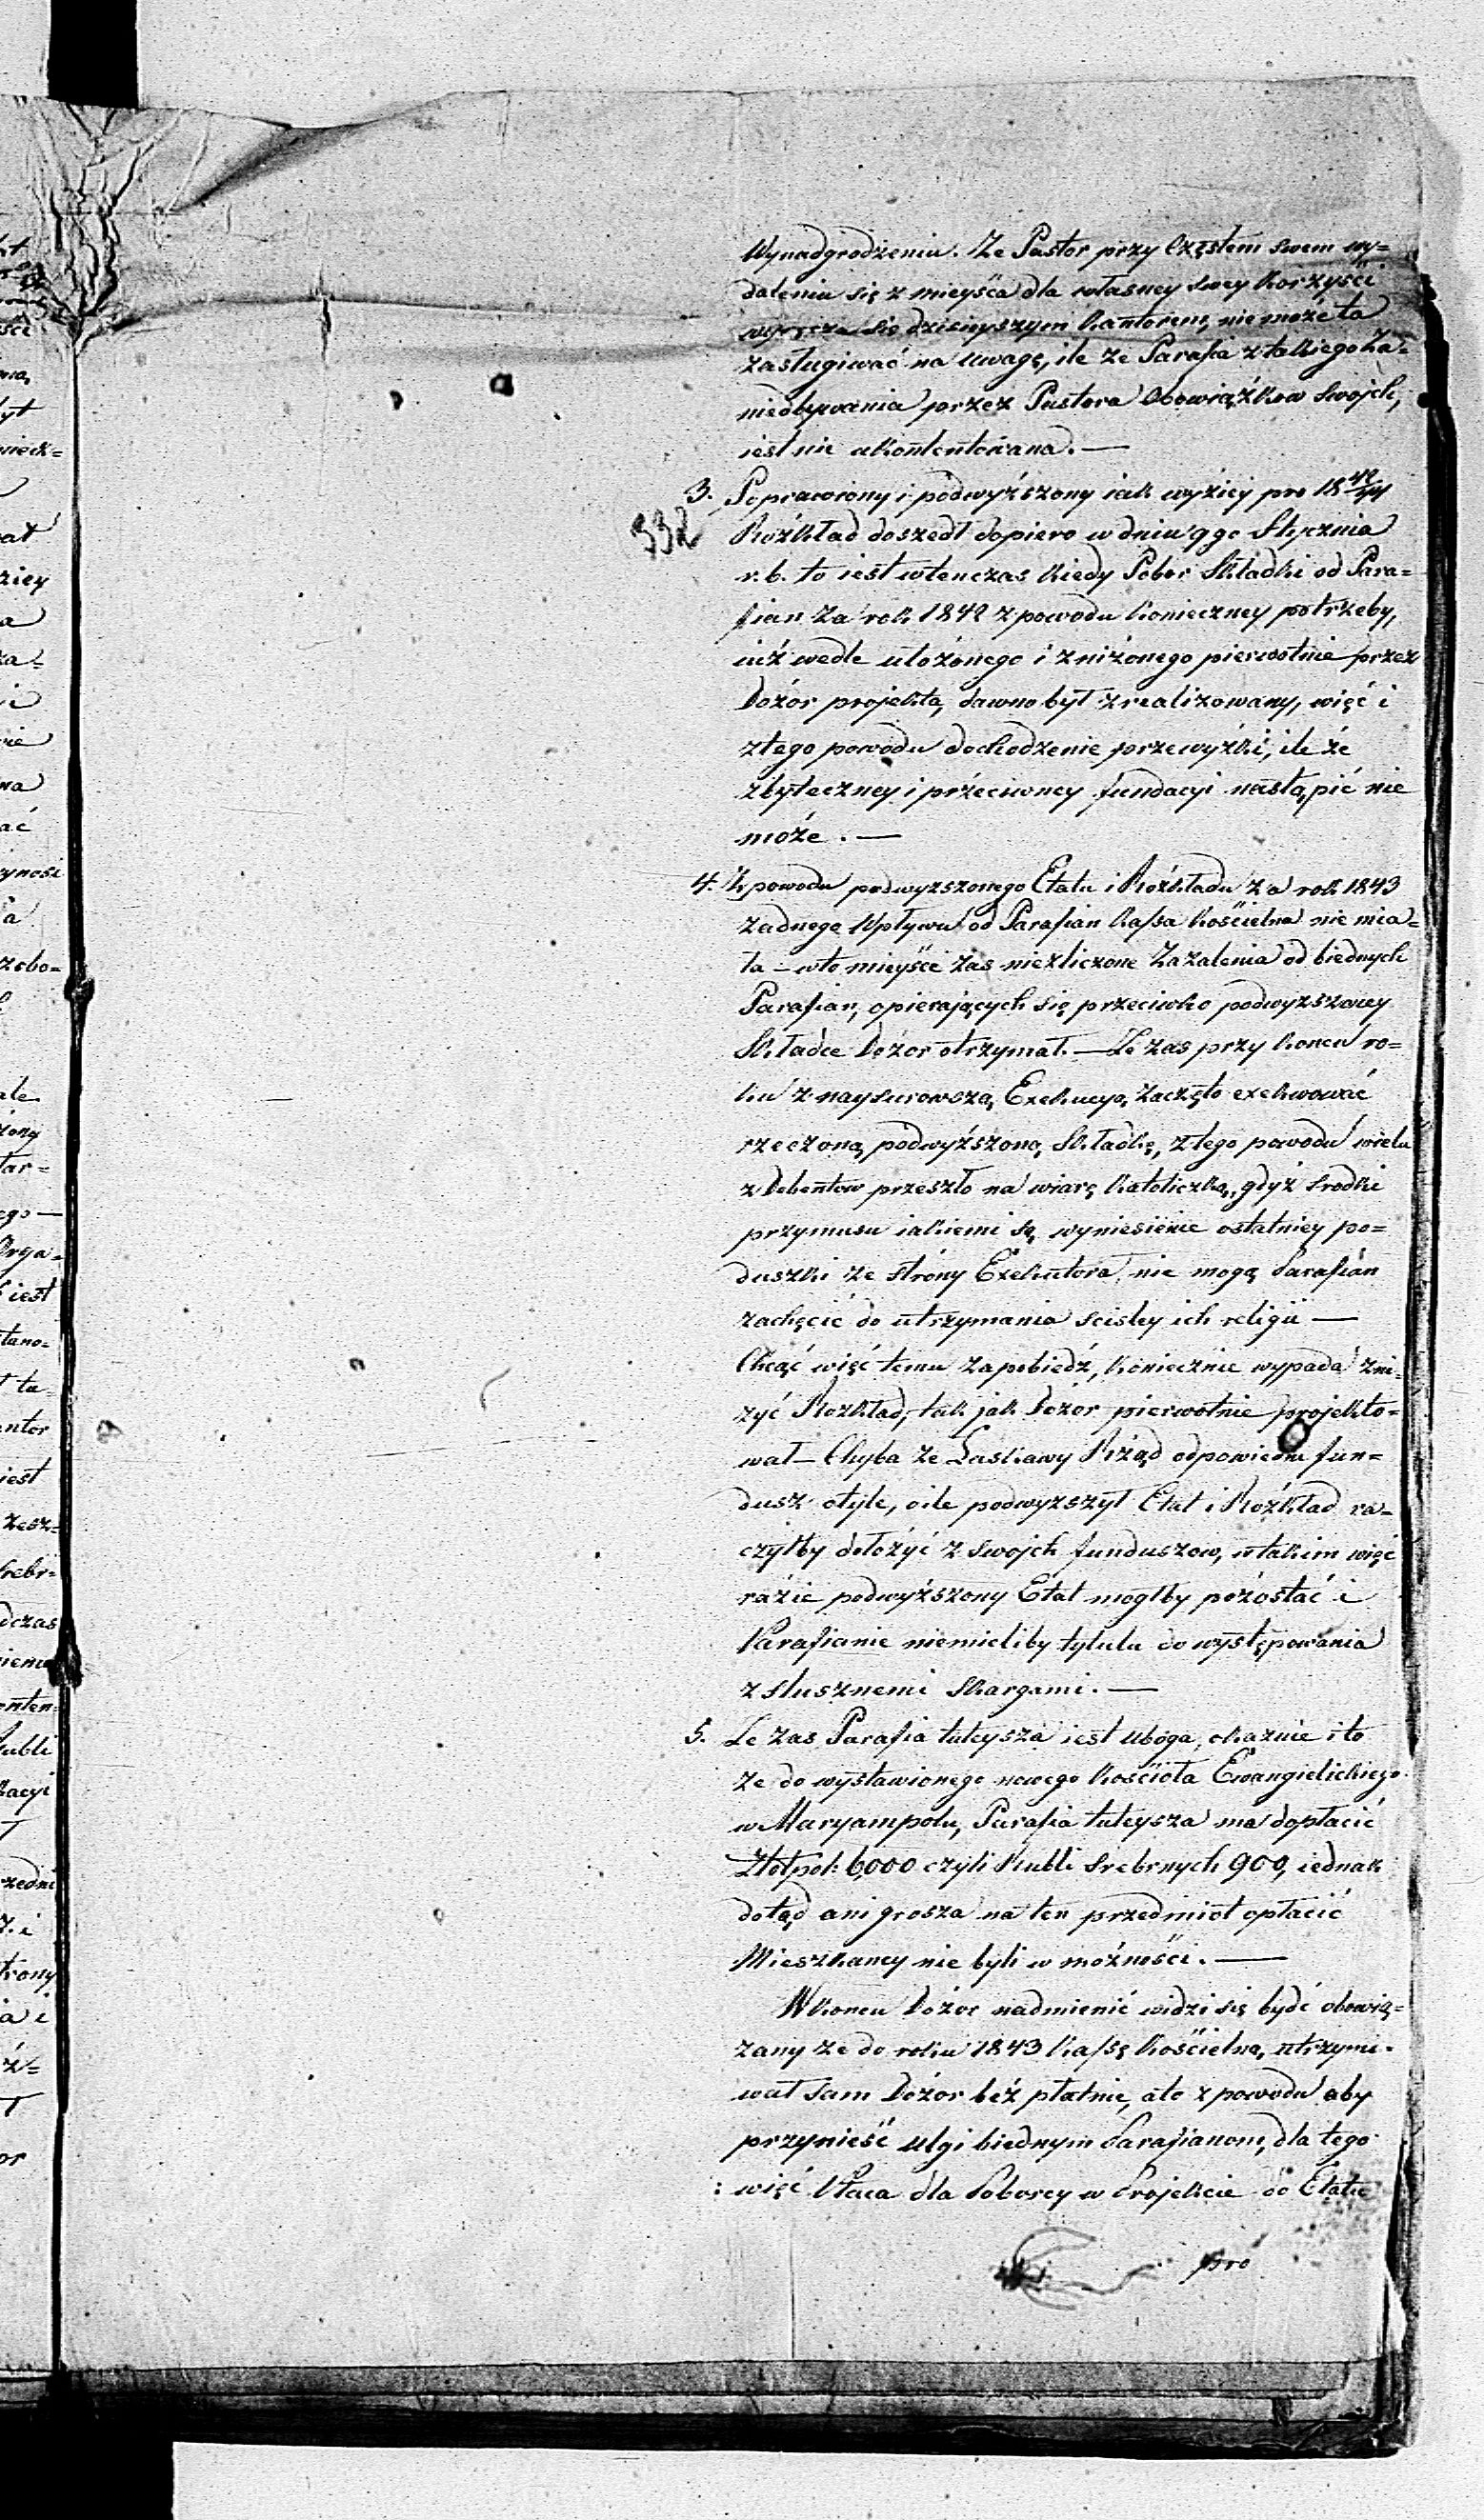 Wynadgrodzeniu. Ze Pastor przy Częstem swem wy=
daleniu się z mieysca dla własney swey korzyści
wyręcza się dzisieyszym Kantorem, nie może to
zasługiwać na uwagę, ile ze Parafia z takiego Za=
niedbywania przez Pastora Obowiązkow swojch,
iest nie ukontentowana. —
3. Poprawiony i podwyższony iak wyżiej pro 18 42/44
332
Rozkład doszedł dopiero w dniu 9go Stycznia
r. b. to iest wtenczas kiedy Pobor Składki od Para=
fian za rok 1842 z powodu konieczney potrzeby,
iuż wedle ułożonego i zniżonego pierwotnie przez
Dozór projektu, dawno był zrealizowany, więć i
z tego powodu dochodzenie przewyżki, ile że
zbyteczney i przeciwney fundacyi nastąpić nie
może. —
4. Z powodu podwyzszonego Etatu i Rozkładu za rok 1843
zadnego Wpływu od Parafian Kassa Kościelna nie mia=
ła – w to mieysce zas niezliczone Zazalenia od biednych
Parafian, opierających się przeciwko podwyzszoney
Składce Dozor otrzymał. — Ze zas przy koncu ro=
ku z naysurowszą Exekucyą zaczęto exekwować
rzeczoną podwyższoną Składkę, z tego powodu wielu
z Debentow przeszło na wiarę Katoliczką, gdyż srodki
przymusu iakiemi są wyniesienie ostatniey po=
duszki ze strony Exekutora, nie mogą Parafian
zachęcić do utrzymania scisley ich religii —
Chcąć więć temu zapobiedz, koniecznie wypada zni=
zyć Rozkład, tak jak Dozor pierwotnie projekto=
wał – Chyba ze Łaskawy Rząd odpowiedni fun=
dusz otyle, oile podwyzszył Etat i Rozkład ra=
czyłby dołożyć z swojch funduszow, w takim więć
razie podwyższony Etat mogłby pozostać i
Parafianie niemieliby tytułu do występowania
z słusznemi skargami. —
5. Ze zas Parafia tuteysza iest uboga, okaznie i to
ze do wystawionego nowego kościoła Ewangielickiego
w Maryampolu, Parafia tuteysza ma dopłacić
Złotpol: 6,000 czyli Rubli Srebrnych 900, iednak
dotąd ani grosza na ten przedmiot opłacić
Mieszkancy nie byli w możności. —
W koncu Dozor nadmienić widzi się bydź obowią=
zany ze do roku 1843 Kassę Kościelną utrzymi=
wał sam Dozor bez płatnie, a to z powodu aby
przynieść ulgi biednym Parafianom, dla tego
więć Płaca dla Poborcy w Projekcie do Etatu
pro